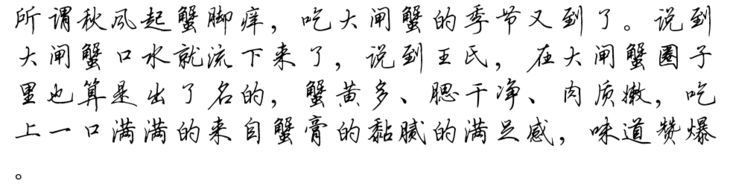 所谓秋风起蟹脚痒，吃大闸蟹的季节又到了。说到
大闸蟹口水就流下来了，说到王氏，在大闸蟹圈子
里也算是出了名的，蟹黄多、腮干净、肉质嫩，吃
上一口满满的来自蟹膏的黏腻的满足感，味道赞爆
。